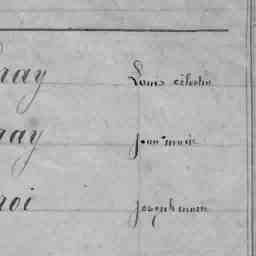 ray Louis célestin
ray jean marie
roi joseph marie